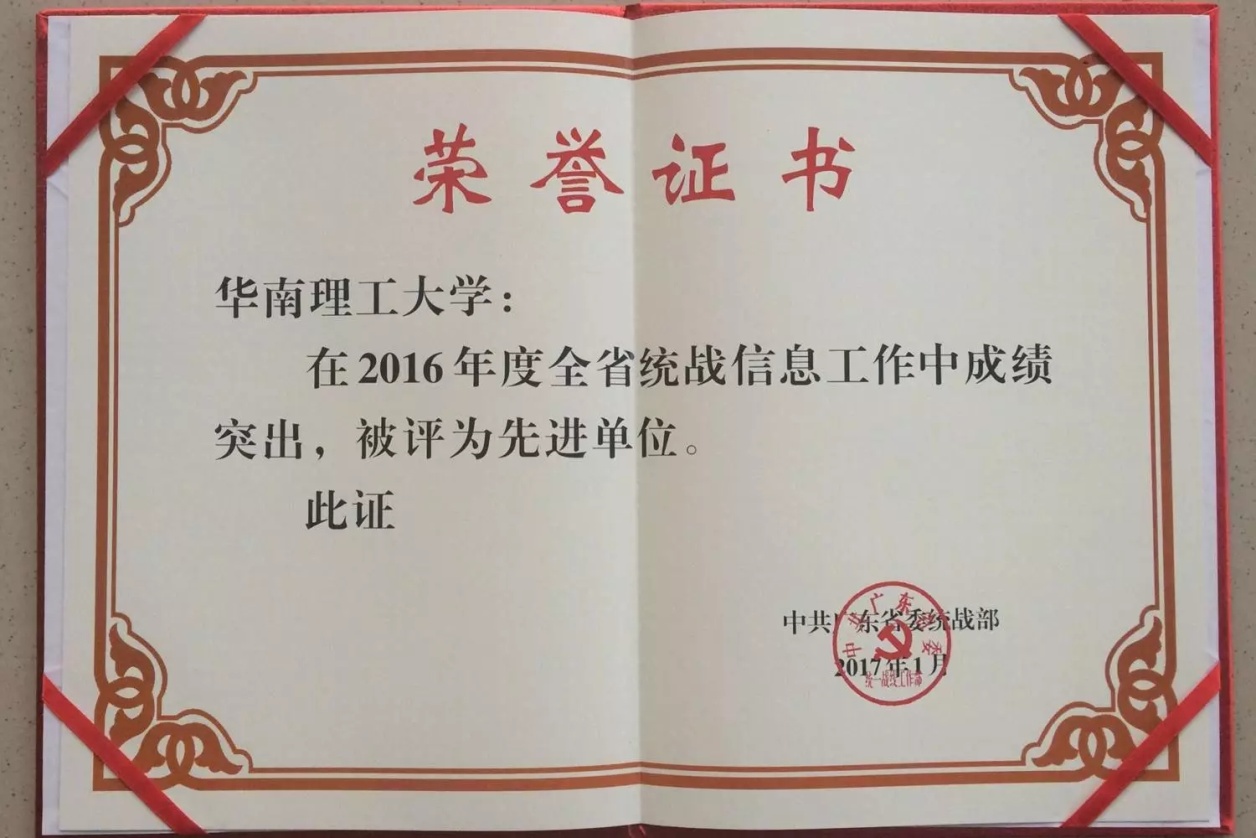 荣誉证书
华南理工大学：
在2016年度全省统战信息工作中成绩
突出，被评为先进单位。
此证
中共广东省委统战部
2017年1月
中共广东省委
统一战线工作部